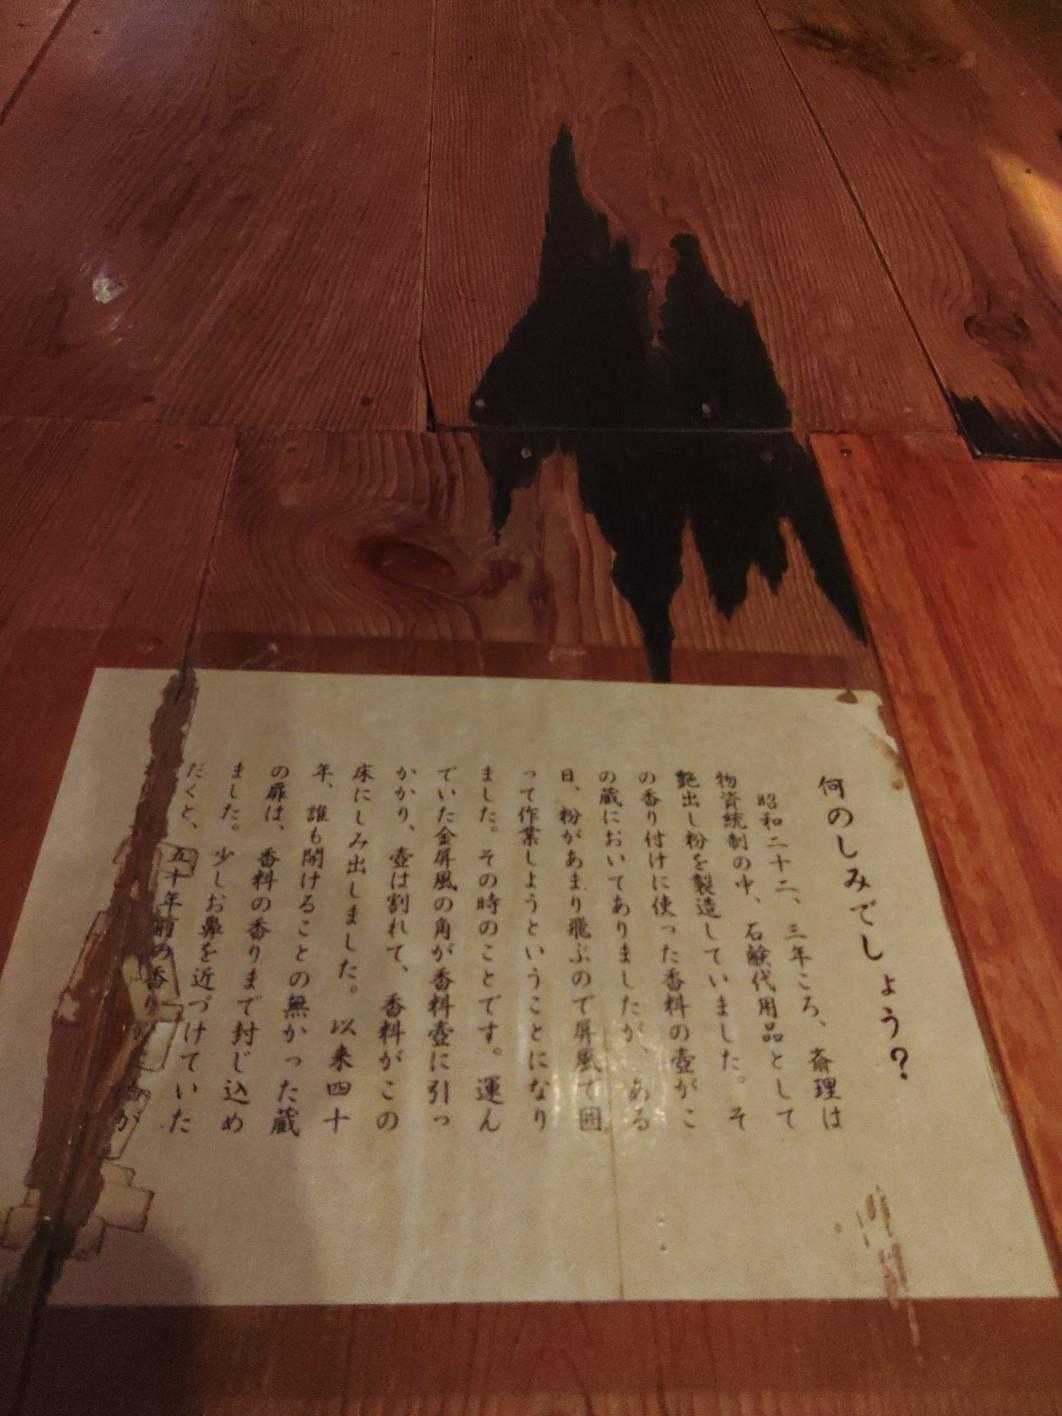 何のしみでしょう？
昭和二十二、三年ころ、斎理は
物資統制の中、石鹸代用品として
艶出し粉を製造していました。そ
の香り付けに使った香料の壺がこ
の蔵においてありましたが、ある
日、粉があまり飛ぶので屏風で囲
って作業しようということになり
ました。その時のことです。運ん
でいた金屏風の角が香料壺に引っ
かかり、壺は割れて、香料がこの
床にしみ出しました。以来四十
年、誰も開けることの無かった蔵
の扉は、香料の香りまで封じ込め
ました。少しお鼻を近づけていた
だくと、五十年前の香り